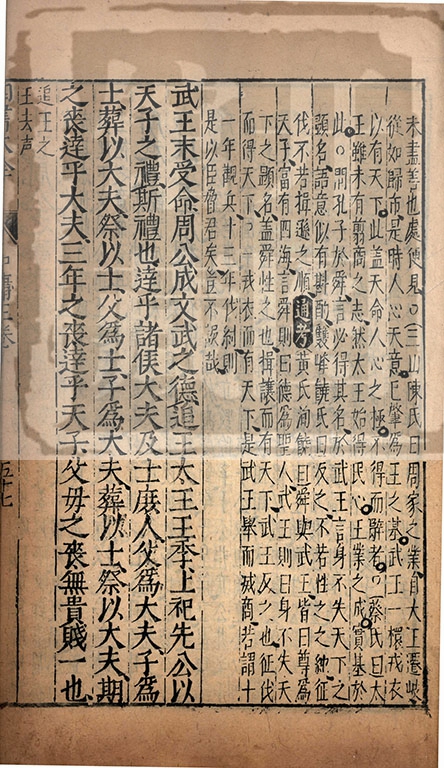 未盡善也處便見○三山陳氏曰周家之業自大王遷岐
從如歸市是時人心天意已肇為王之基武王一擐戎衣
以有天下此蓋天命人心之極不得而辭者○蔡氏曰太
王雖未有翦商之志然太王始得民心王業之成實基於
此○問孔子於舜言必得其名於武王言身不失天下之
顯名語意似有斟酌雙峰饒氏曰反之不若性之之純征
伐不若揖遜之順通考黃氏洵饒曰舜與武王皆曰尊為
天子富有四海言舜則曰德為聖人武王則曰身不失天
下之顯名蓋舜性之也揖讓而有天下武王反之也征伐
而得天下○一戎衣而有天下是武王舉而殪商若謂十
一年觀兵十三年伐紂
是以臣脅君矣豈不誤哉
武王末受命周公成文武之德追王太王王季上祀先公以
天子之禮斯禮也達乎諸侯大夫及士庶人父為大夫子為
士葬以大夫祭以士父為士子為大夫葬以士祭以大夫期
之喪達乎大夫三年之喪達乎天子父母之喪無貴賤一也
追王之
王去声
五十七